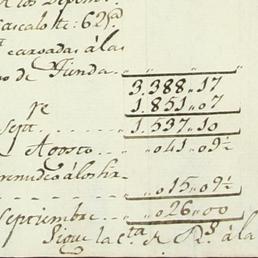 Cascalote: 625
cargadas á las
de Tienda 3.388 „ 17
1.851 „ 07
Sept. 1.537 „ 10
Agosto „ 041 „ 09½
„ 015 „ 09½
Septiembre „ 026 „ 00
Sigue la c.ta de R.s á la